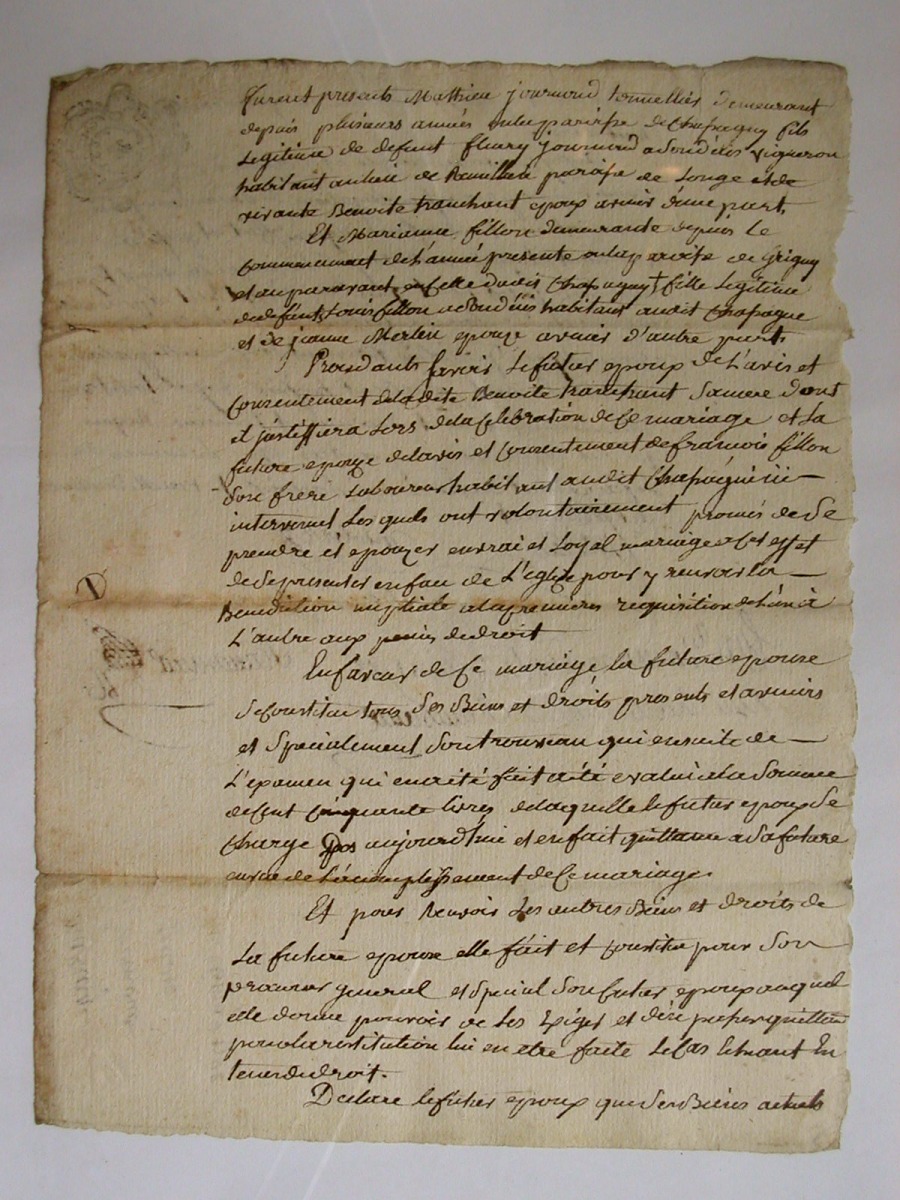 furent presents Mathieu journoud tonnellier demeurant
depuis plusieurs années en la paroisse de Chassagny fils
Legitime de defunt fleury journoud a son déces vigneron
habitant au lieu de paroisse de Longe et de
vivante Benoite tranchant epoux avenir d'une part
Et Marianne fillon demeurante depuis le
commencement de L'année presente en la paroisse de Grigny
et auparavant en celle dudit Chassagny † fille Legitime
de defunt Louis fillon a son déces habitant audit Chassagne
et de jeanne Merlin epouze avenir d'autre part
Procedants savoir Le futur epoux de L'avis et
consentement de ladite Benoite tranchant sa mere dont
il justiffiera Lors de la Celebration de Ce mariage et La
future epouze de lavis et consentement de francois fillon
son frere Laboureur habitant audit
intervenant Les quels ont volontairement promis de Se
prendre et epouzer en vrai et Loyal mariage a Cet effet
de Se presenter en face de L'eglize pour y recevoir La
Benediction nuptiale a la premiere requisition de L'un à
L'autre aux peines de droit
En faveur de Ce mariage la future epouse
Se Constitue tous Ses Biens et droits presents et avenirs
et Specialement Son trousseau qui ensuite de
L'examen qui en a été fait a été evalué a la Somme
de Cent Cinquante livres de laquelle le futur epoux Se
Charge dès aujourd'hui et en fait quittance a Sa future
en vue de L'accomplissement de Ce mariage
Et pour Recevoir Les autres Biens et droits de
La future epouse elle fait et constitue pour Son
procureur general et Special Son futur epoux auquel
elle donne pouvoir de Les Exiger et d'en passer quittance
pour la restitution lui en etre faite Le Cas Echeant En
termes de droit.
Declare le futur epoux que Ses Biens actuels